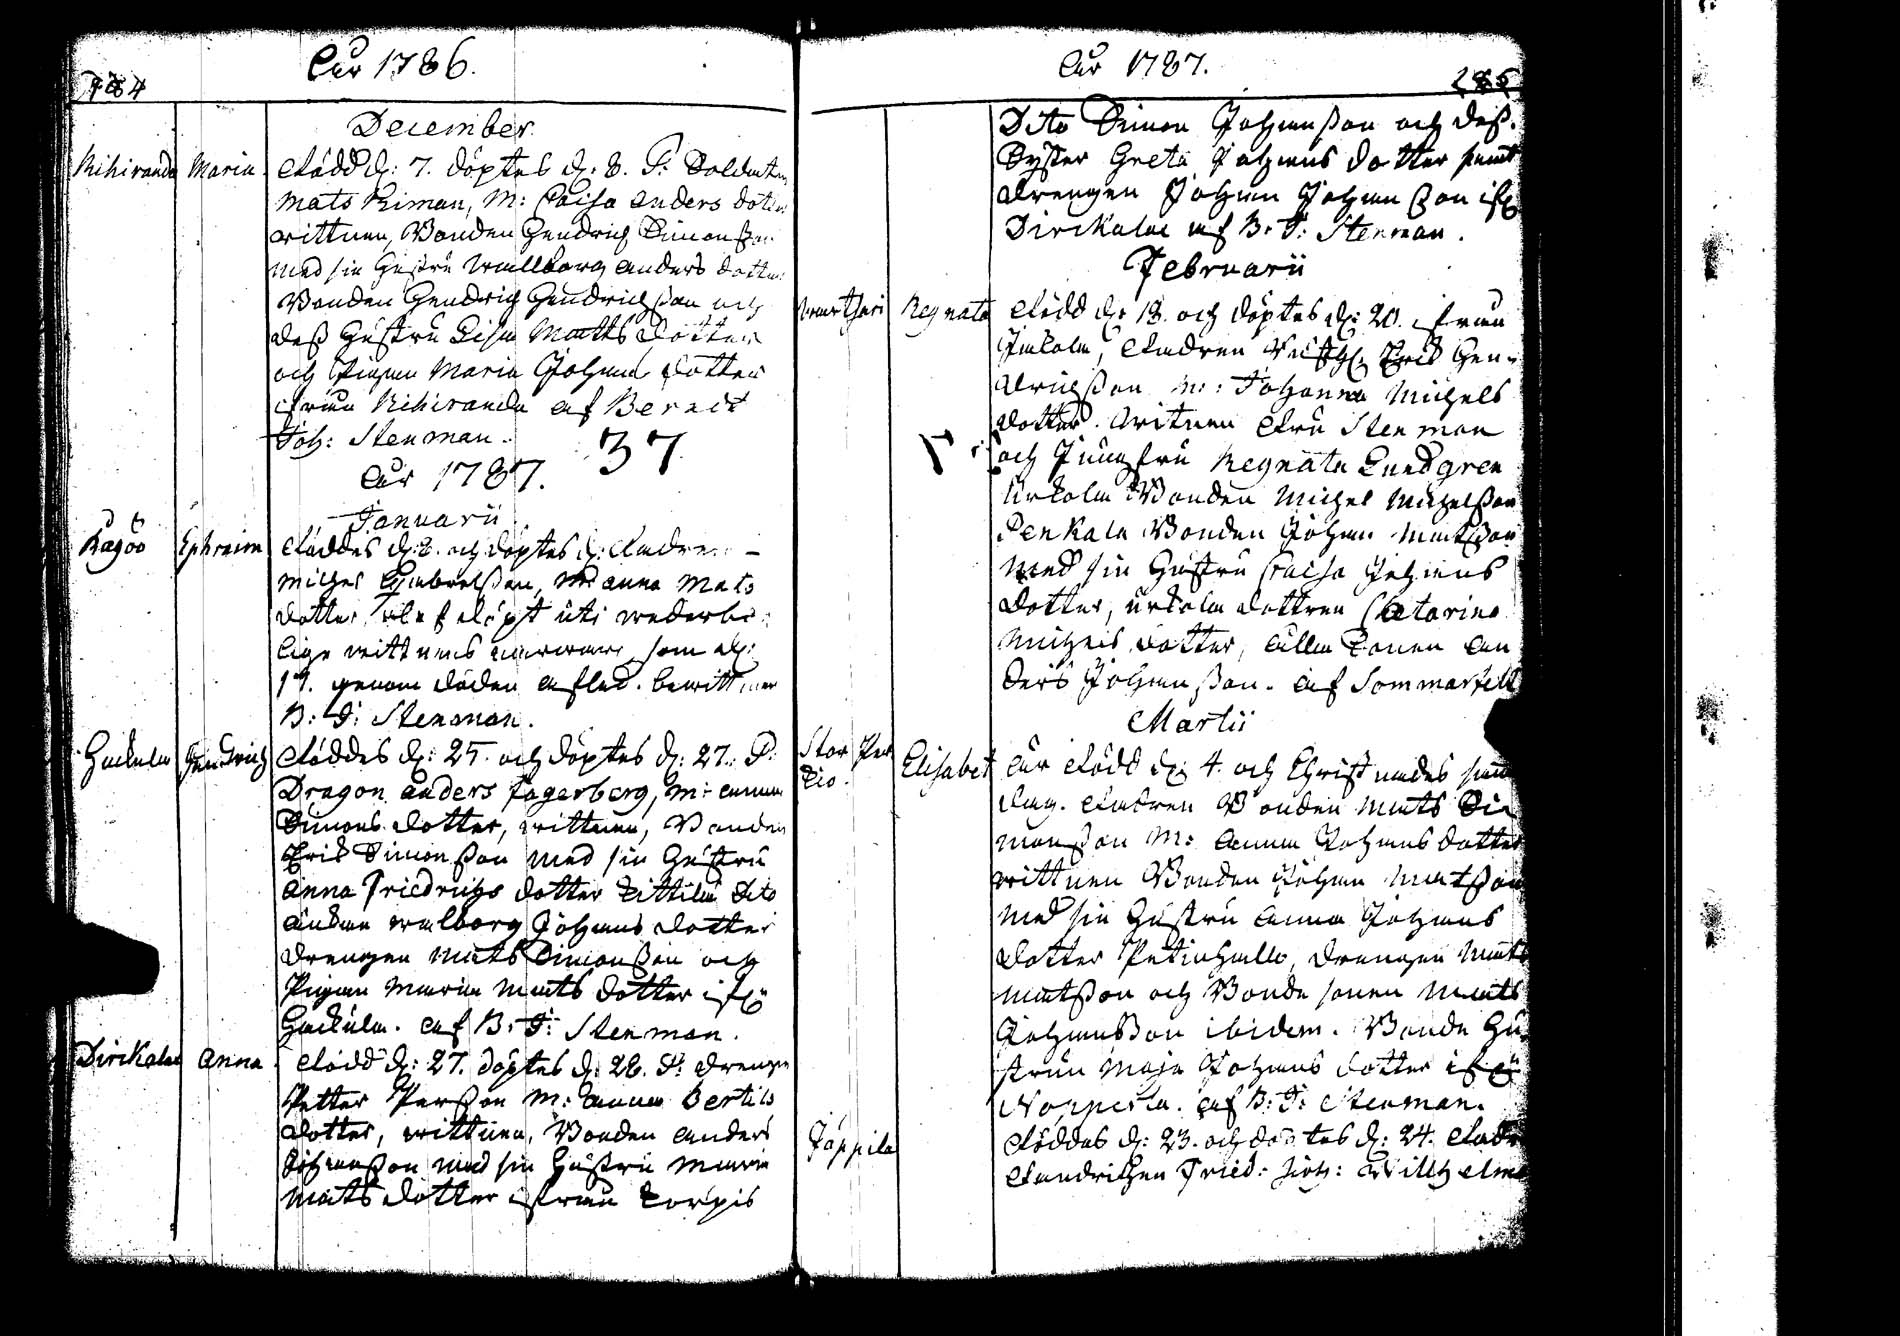 284
Åhr 1786.
December.
Kihiranda Maria. Född d: 7. döptes d: 8. F: Soldaten
Mats Kiman, M: Caisa Anders dotter
wittnen, Bonden Hendrich Simonsson
med sin Hustru Wallborg Anders dotter
Bonden Hendrich Hendrichsson och
dess Hustru Lisa Matts dotter
och Pigan Maria Johans dotter
ifrån Kihiranda af Bened.
Joh: Stenman.
37
Åhr 1787.
Januarii
Ragöö Ephraim Föddes d: 2. och döptes d: Fadren
Michel Gabrielsson, M: Anna Mats
dotter, blef döpt uti wederbör
lige wittnens närwaro, som d:
17. genom döden afled. bewittnar
B: J: Stenman.
Hackula Hendrich Föddes d: 25. och döptes d: 27. F:
Dragon Anders Fagerberg, M: Anna
Simons dotter, wittnen, Bonden
Erik Simonsson med sin Hustru
Anna Friedrichs dotter Dito
Enkan Walborg Johans dotter
drengen Mats Simonsson och
Pigan Maria Mats dotter ifrån
Hackula. af B: J: Stenman.
Dirikalae Anna. Född d: 27. döptes d: 28. F: drengen
Petter Persson M: Anna Bertils
dotter, wittnen, Bonden Anders
Johansson med sin Hustru Maria
Mats dotter ifrån Torpis
285
Åhr 1787.
Dito Simon Johansson och dess
Syster Greta Johans dotter samt
drengen Johan Johansson ifrån
Dirikalae af B: J: Stenman.
Februarii
Regnata Född d: 18. och döptes d: 20. ifrån
Jukola, Fadren Erik Hen-
drichsson M: Johanna Michels
dotter. Witnen Fru Stenman
och Jungfru Regnata Lundgren
Urkola Bonden Michel Michelsson
Penkala Bonden Johan Matsson
med sin Hustru Caisa Johans
dotter, Urkola dottren Catarina
Michels dotter, Ulla Sonen An
ders Johansson. af Sommarfelt
Martii
Stor Per
tio. Elisabet Är Född d: 4. och Christnades samma
dag. Fadren Bonden Mats Si
monsson M: Anna Johans dotter
wittnen Bonden Johan Matsson
med sin Hustru Anna Johans
dotter Petinhallo, drengen Mats
Matsson och Bonde sonen Mats
Johansson ibidem. Bonde Hu
strun Maja Johans dotter ifrån
Nopperla. af B: J: Stenman.
Jäppilä Föddes d: 23. och döptes d: 24. Fadr
Fendrichen Fried: Joh: Willhelms